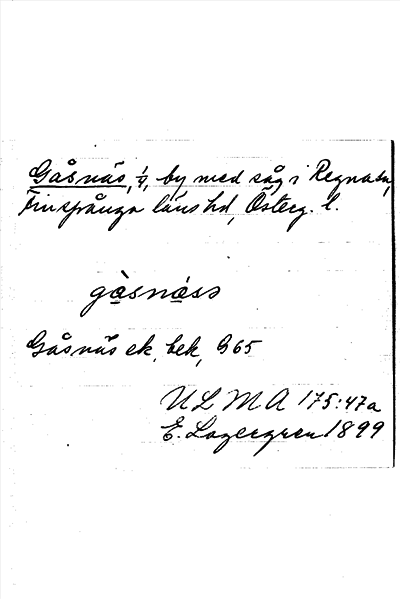 Gåsnäs, 1/4, by med såg i Regna sn,
Finspånga läns hd, Österg. l.
gåsnäss
Gåsnäs ek. bek, G 65
ULMA 175:47a
E. Lagergren 1899